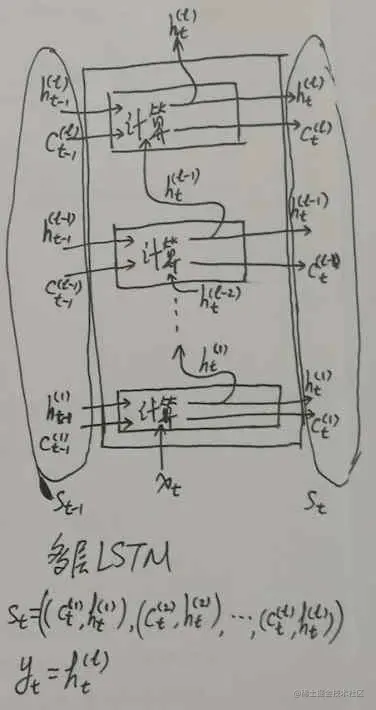 h_t^(l)
h_{t-1}^(l) h_t^(l)
计算
C_{t-1}^(l) C_t^(l)
h_t^(l-1)
h_{t-1}^(l-1) h_t^(l-1)
计算
C_{t-1}^(l-1) C_t^(l-1)
h_t^(l-2)
h_t^(1)
h_{t-1}^(1) h_t^(1)
计算
C_{t-1}^(1) C_t^(1)
x_t
S_{t-1} S_t
多层LSTM
S_t=((C_t^(1),h_t^(1)),(C_t^(2),h_t^(2)),…,(C_t^(l),h_t^(l)))
y_t=h_t^(l)
@稀土掘金技术社区